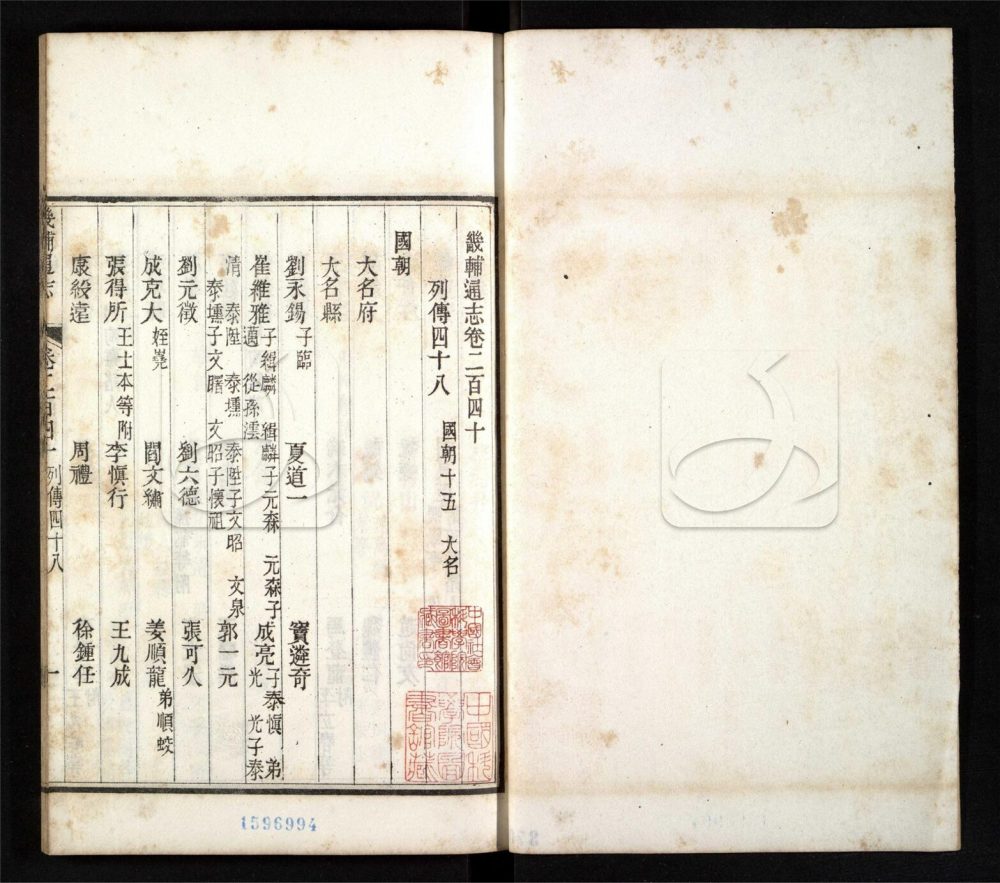 畿輔通志卷二百四十
列傳四十八 國朝十五 大名
國朝
大名府
大名縣
劉永錫 子臨 夏道一 竇遴奇
崔維雅 子緝麟 緝麟子元森 元森子 邁 從孫澐 成亮 子泰愼 弟光 光子泰
清 泰陞 泰壎 泰陞子文昭 文泉 泰壎子文曙 文昭子懷祖 郭一元
劉元徵 劉六德 張可久
成克大 姪嶤 閻文繡 姜順龍 弟順蛟
張得所 王士本等附 李愼行 王九成
康綬遠 周禮 徐鍾任
畿輔通志 卷二百四十 列傳四十八 一
中國社會科學院圖書館藏書印
1596994